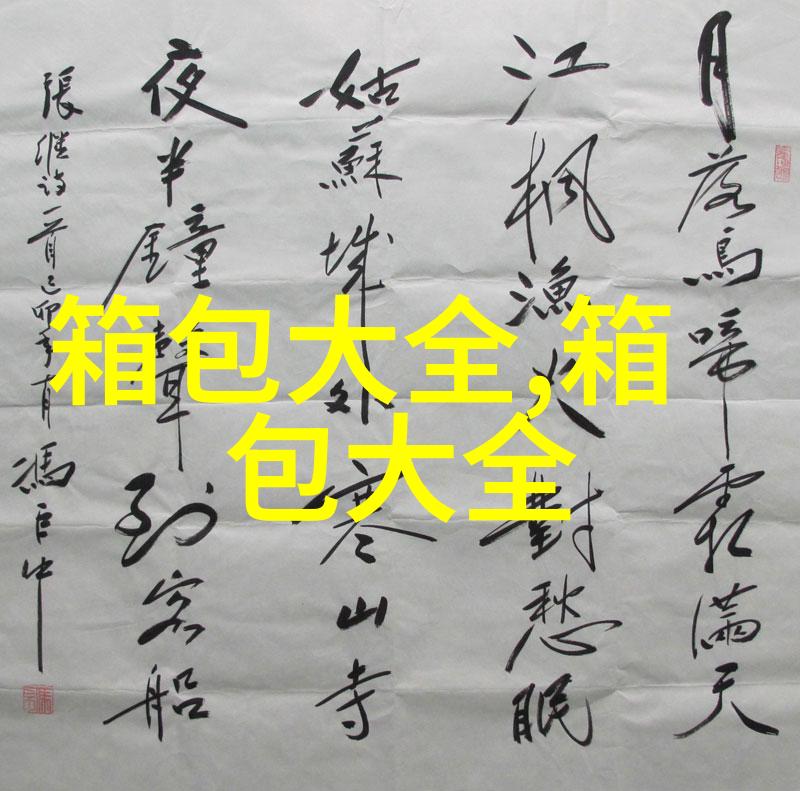 月落烏啼霜滿天
江楓漁火對愁眠
姑蘇城外寒山寺
夜半鐘聲到客船
張繼詩一首己卯年
馮巨中
箱包大全,箱
包大全